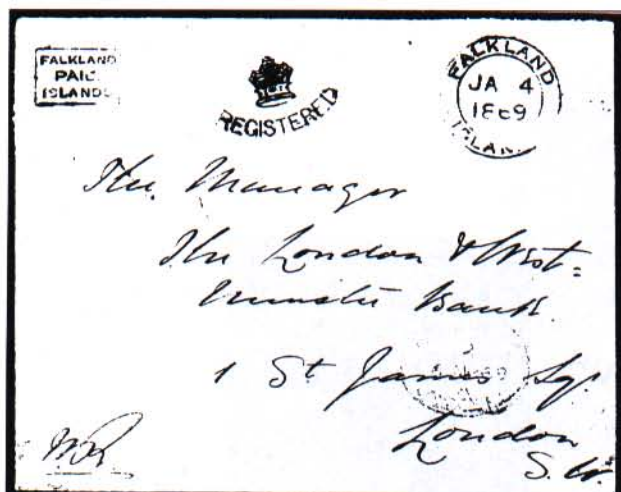 FALKLAND
PAID
ISLANDS
REGISTERED
FALKLAND
JA 4
1869
ISLAN
The Manager
The London & West=
minster Bank
1 St James Sqr
London
S.W.